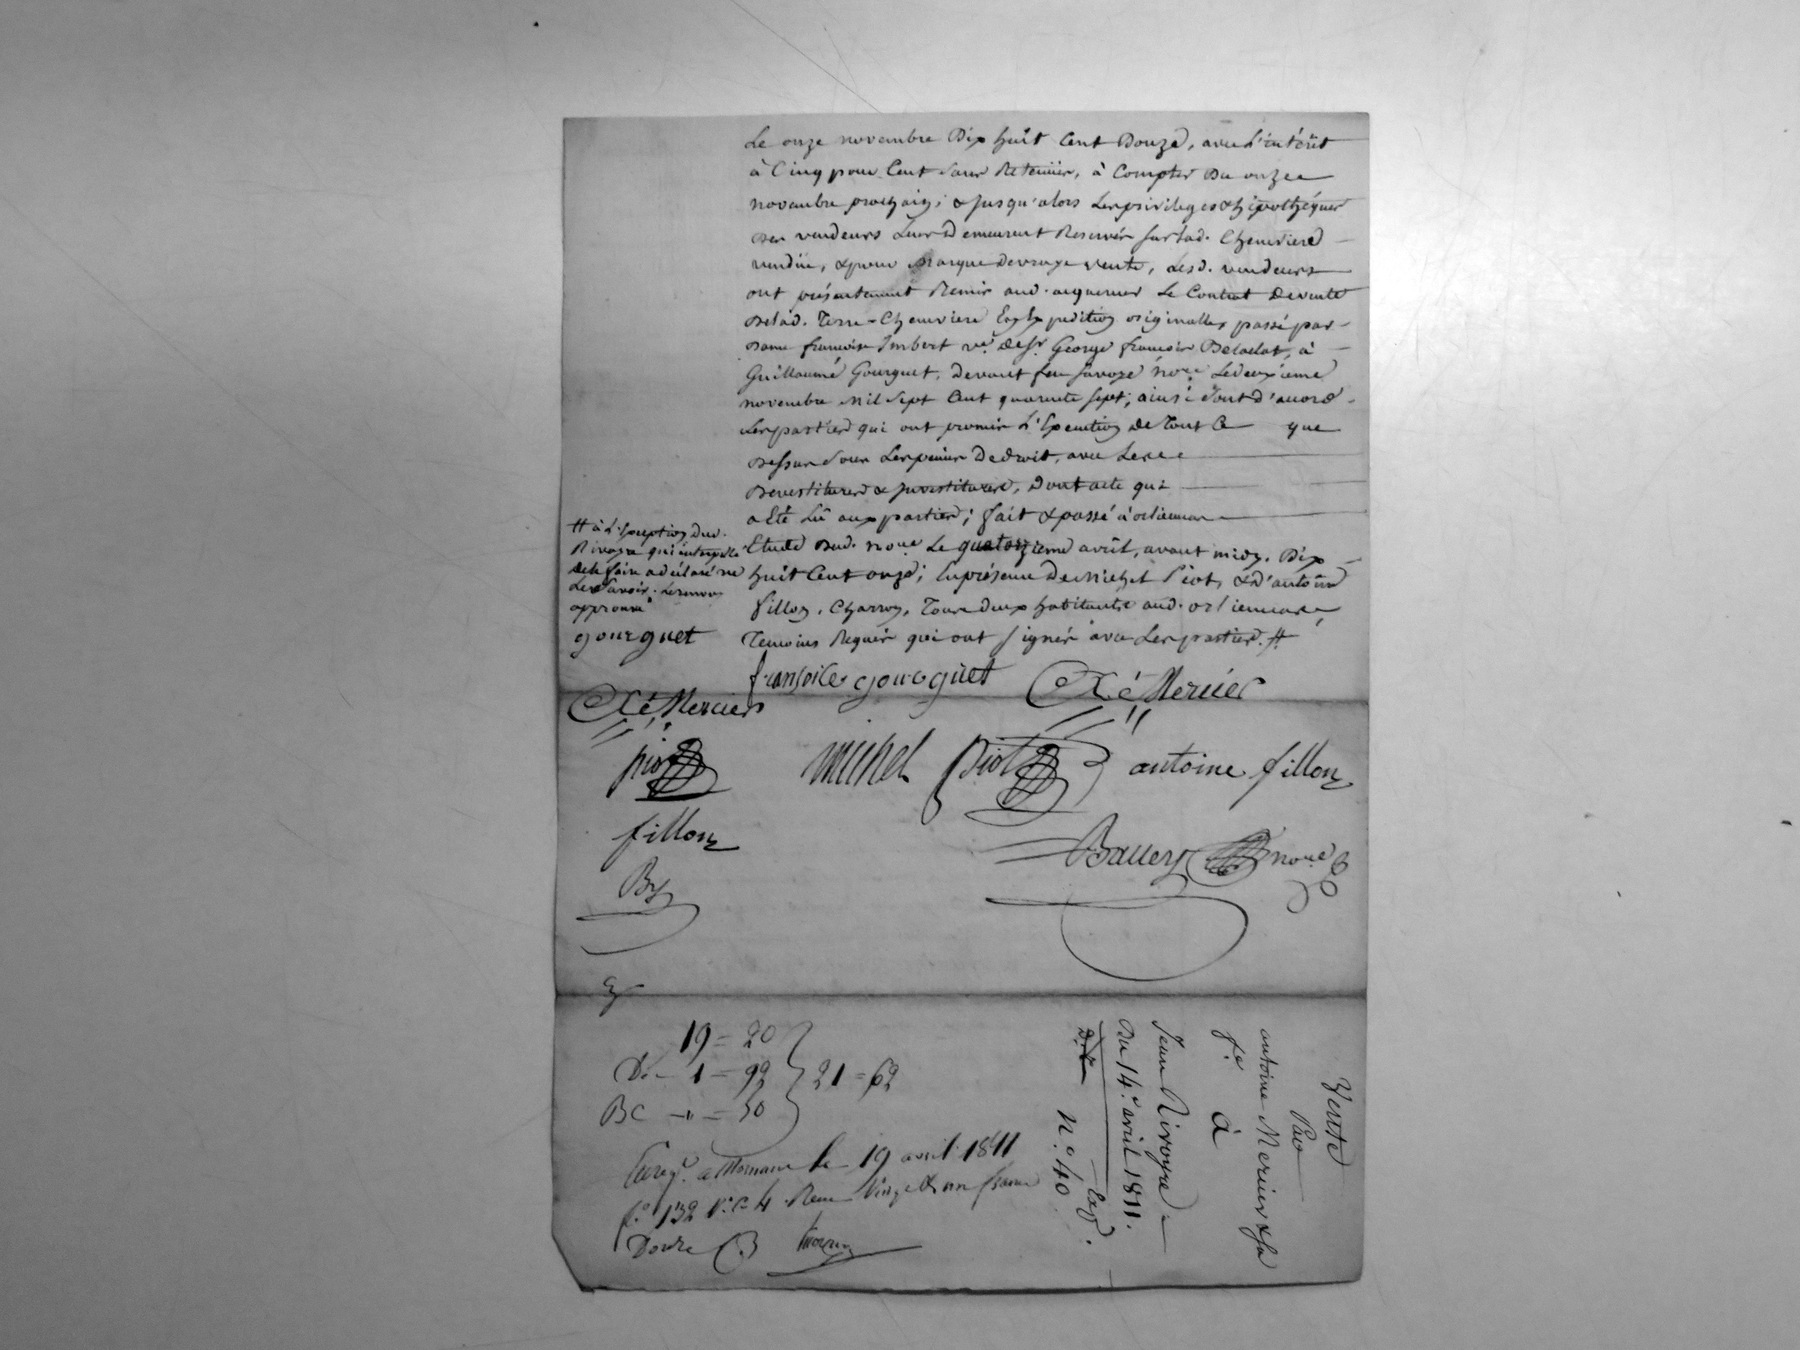 Le onze novembre Dix huit Cent Douze, avec l'intérêt
à Cinq pour Cent sans Retenüe, à Compter du onze
novembre prochain; & jusqu'alors les privileges & hipothéques
des vendeurs leur Demeurent Reservés sur lad. Cheneviere
vendüe, & pour marque de vraye vente, lesd. vendeurs
ont présentement Remis aud. acquereur le Contrat de vente
de lad. Terre-Cheneviere En Expedition originalle, passé par
Dame françoise Imbert ve. de Sr. George françois Delaclot, à
Guillaume Gourguet, devant feu Savoye Nore. le deuxieme
novembre mil Sept Cent quarante Sept; ainsi sont d'accord
les parties qui ont promis l'Execution de Tout Ce que
dessus sous les peines de droit, avec les
Devestitures & Investitures, Dont acte qui
a Eté Lû aux parties; fait & passé à orlienas
Etude dud. nore. Le quatorzieme avril, avant midy, Dix
huit Cent onze; En présence de Michel Piot, & d'antoine
fillon, Charron, Tous deux habitants aud. orlienas,
Temoins Requis qui ont signés avec les parties. #
# à l'Exception dud.
Rivoyre qui interpellé
de le faire a déclaré ne
le savoir. Renvoy
approuvé
gourguet
fransoise gourguet
Mercier
Mercier
piot
michel piot
antoine fillon
fillon
nore
19 = 20
De - 1 = 92
21 = 62
BC - " = 50
Enregé. a Mornant le 19 avril 1811
fo. 132 Vo. C. 4. Recu Vingt & un francs
Vente
Par
antoine Mercier & sa
fe.
à
Jean Rivoyre
Du 14e. avril 1811.
Exp.
No. 40